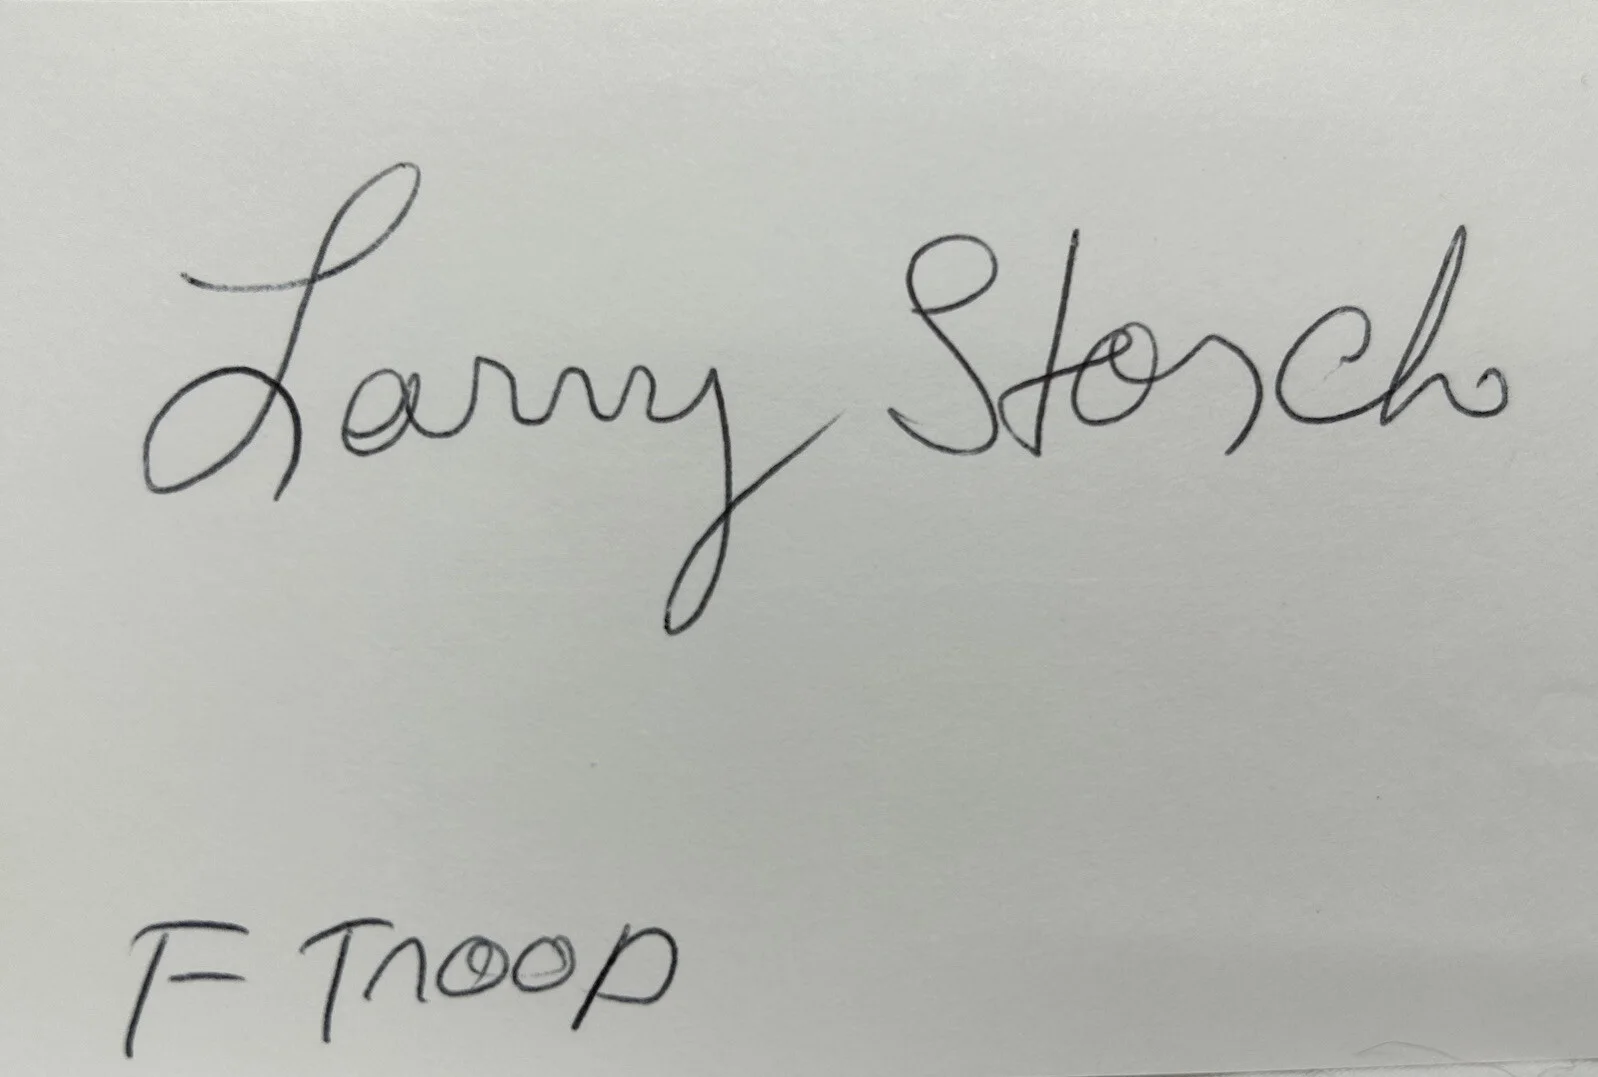 Larry Storch
F Troop